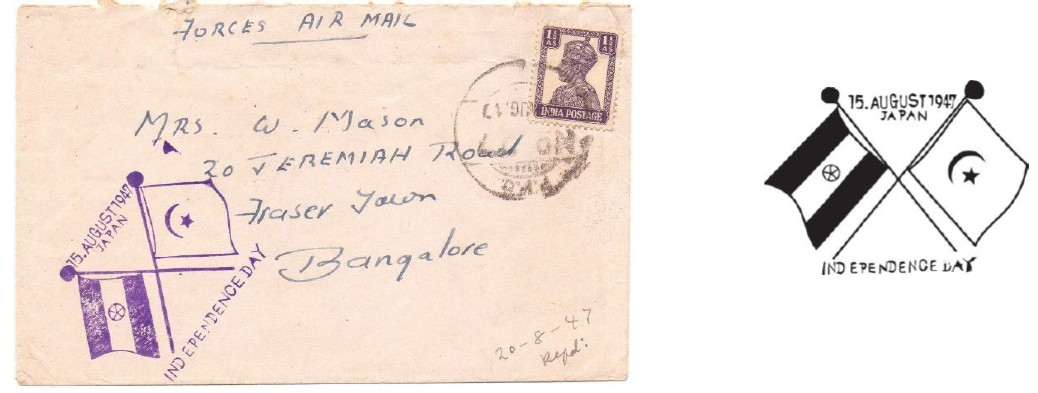 FORCES AIR MAIL
1½ AS 1½ AS
INDIA POSTAGE
AUG.
MRS. W. Mason
20 JEREMIAH Road
Fraser Town
Bangalore
15.AUGUST1947
JAPAN
INDEPENDENCE DAY
20-8-47
15.AUGUST1947
JAPAN
INDEPENDENCE DAY